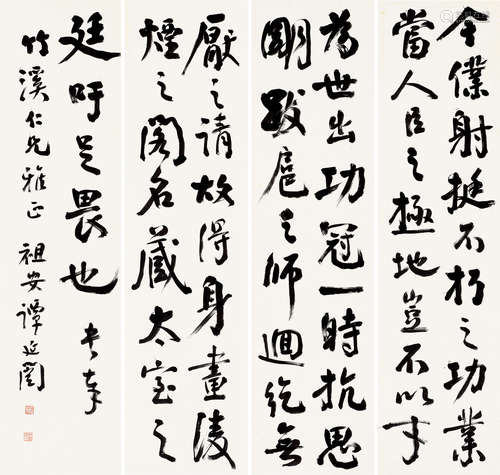 今僕射挺不朽之功業
當人臣之極地豈不以才
為世出功冠一時抗思
明跋扈之師迴紇無
厭之請故得身畫陵
煙之閣名藏太室之
廷吁足畏也 書奉
竹溪仁兄雅正 祖安譚延闓